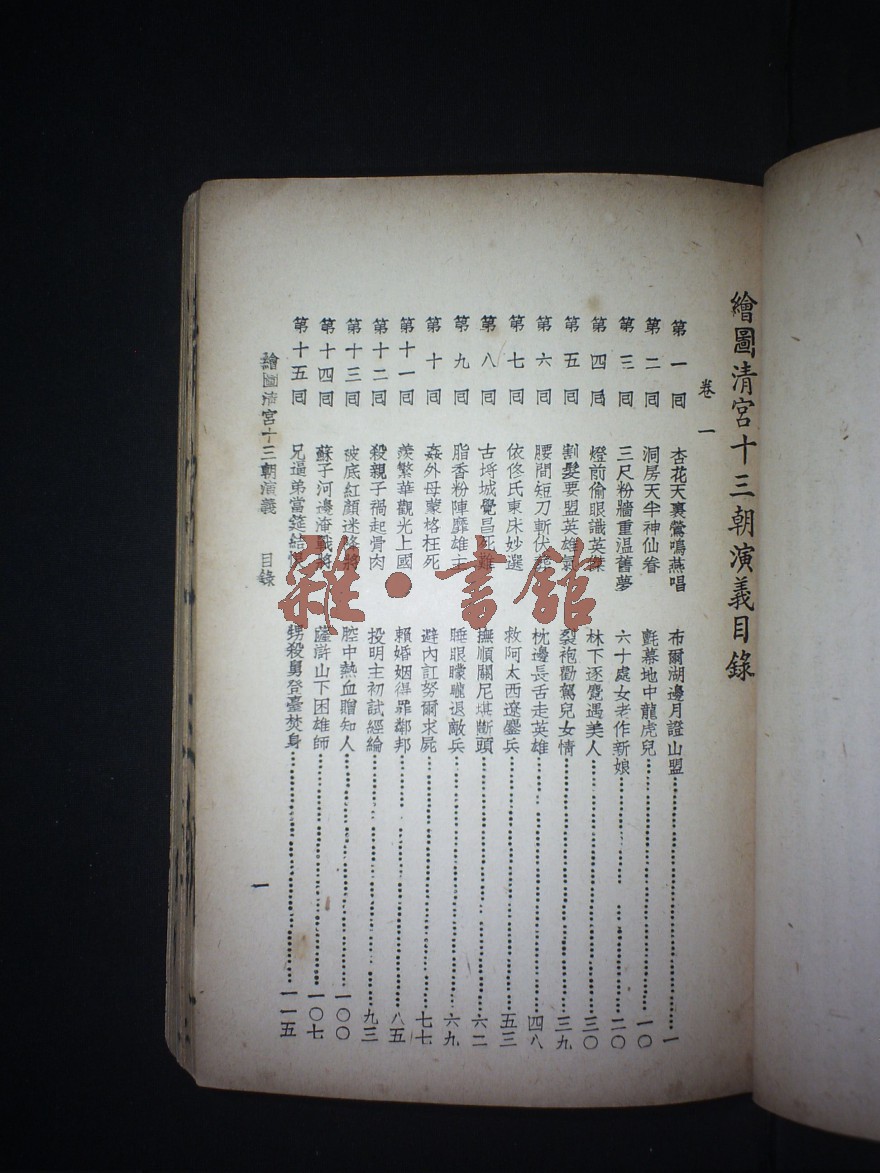 繪圖清宮十三朝演義目錄
卷一
第一回 杏花天裏鶯鳴燕唱 布爾湖邊月證山盟 一
第二回 洞房天半神仙眷 氈幕地中龍虎兒 一〇
第三回 三尺粉牆重溫舊夢 六十處女老作新娘 二〇
第四回 燈前偷眼識英傑 林下逐鹿遇美人 三〇
第五回 割髮要盟英雄氣 裂袍勸駕兒女情 三九
第六回 腰間短刀斬伏莽 枕邊長舌走英雄 四八
第七回 依佟氏東床妙選 救阿太西遼鏖兵 五三
第八回 古埒城覺昌死難 撫順關尼堪斷頭 六二
第九回 脂香粉陣靡雄主 睡眼矇矓退敵兵 六九
第十回 姦外母蒙格枉死 避內訌努爾求屍 七七
第十一回 羨繁華觀光上國 賴婚姻得罪鄰邦 八五
第十二回 殺親子禍起骨肉 投明主初試經綸 九三
第十三回 被底紅顏迷降將 腔中熱血贈知人 一〇〇
第十四回 蘇子河邊淹戰將 薩滸山下困雄師 一〇七
第十五回 兄逼弟當筵結恨 甥殺舅登臺焚身 一一五
繪圖清宮十三朝演義 目錄 一
雜·書館